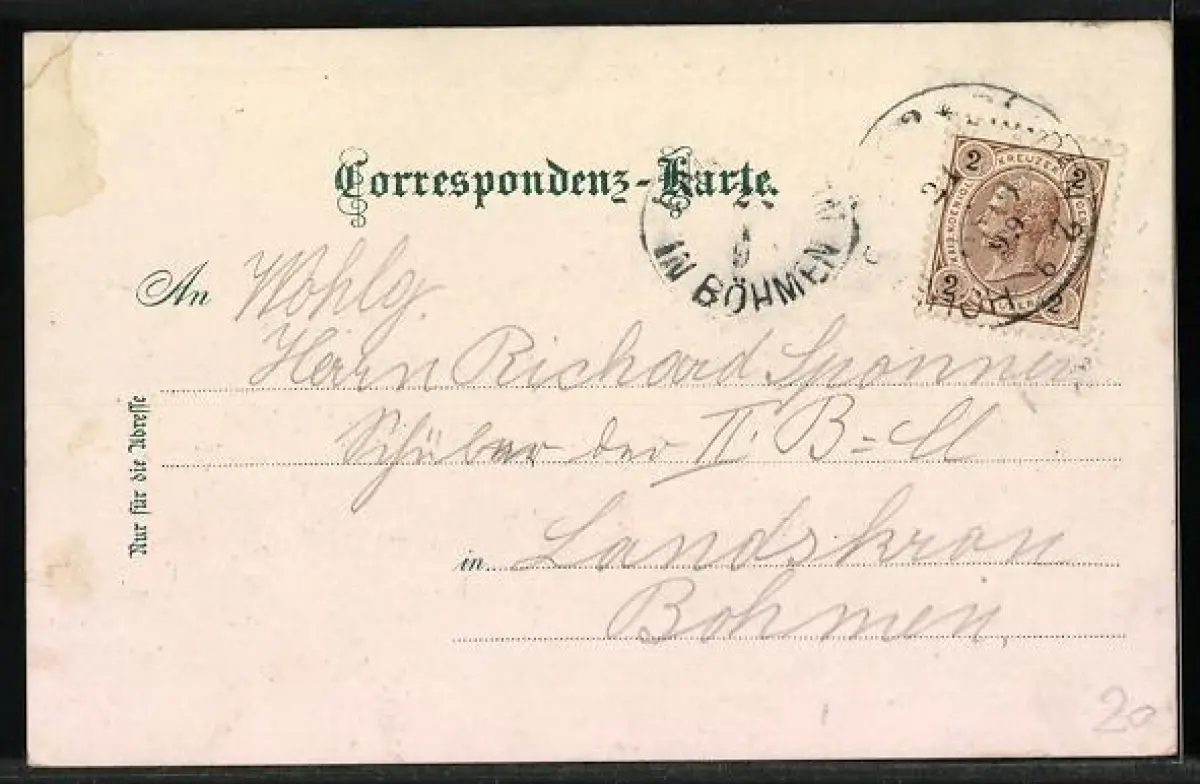 Correspondenz-Karte.
IN BÖHMEN
2 KREUZER 2
2 2
An Wohlg.
Herrn Richard
der II. B=
Nur für die Adresse
in Landskron
Böhmen,
20